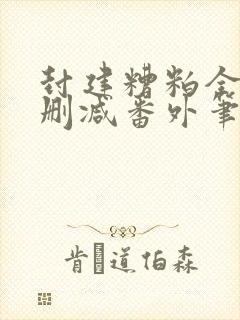 封建糟粕全
删减番外笔
肯道伯森